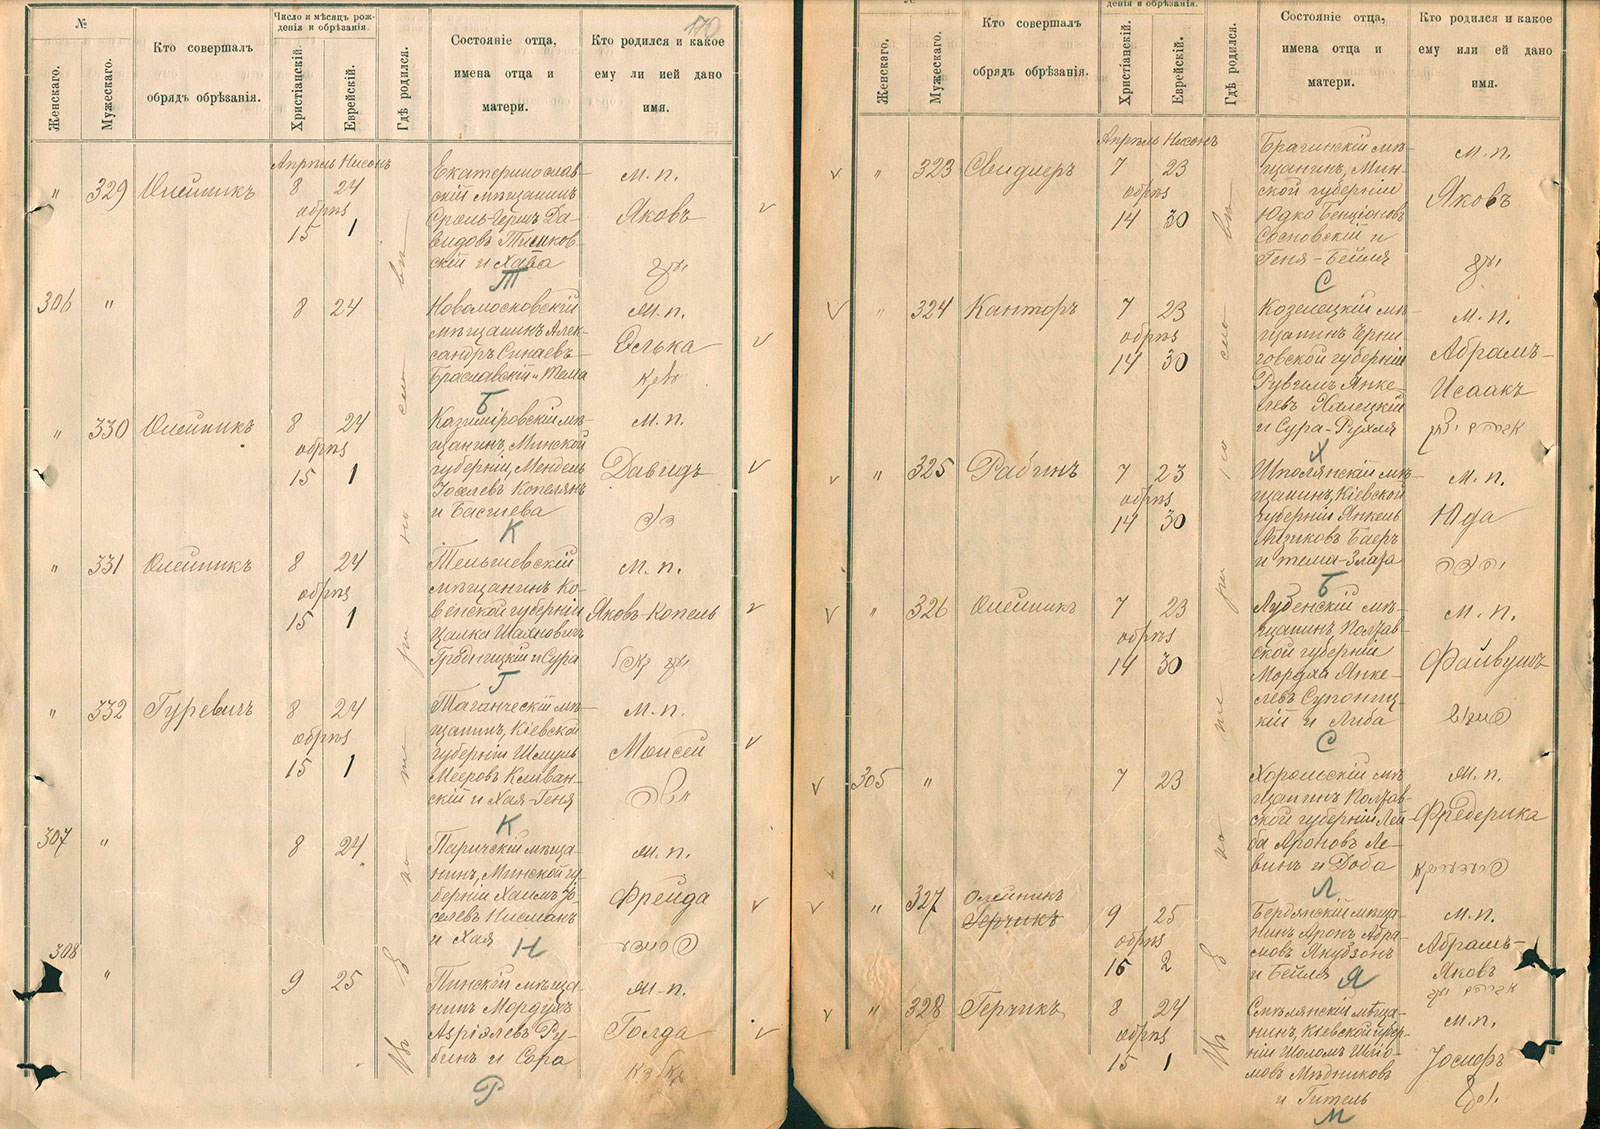 170
№
Женскаго.
Мужескаго.
Кто совершалъ
обрядъ обрѣзанія.
Число и мѣсяцъ рож-
денія и обрѣзанія.
Христіанскій.
Еврейскій.
Гдѣ родился.
Состояніе отца,
имена отца и
матери.
Кто родился и какое
ему ли ией дано
имя.
Апрѣль Нисонъ
" 329 Олейникъ 8 24
обрѣз
15 1
Екатеринослав-
скій мѣщанинъ
Сроль-Герш Да-
видовъ
скій и Хава
М. п.
Яковъ
יעקב
Т
306 " 8 24
Новомосковскій
мѣщанинъ Алек-
сандръ Синаевъ
Браславскій и Тема
М. п.
Б
" 330 Олейникъ 8 24
обрѣз
15 1
Казимировскій мѣ-
щанинъ, Минской
губерніи, Мендель
Іоселевъ Копелян
и Басшева
М. п.
Давидъ
דוד
К
" 331 Олейникъ 8 24
обрѣз
15 1
Тельшевскій
мѣщанинъ Ко-
венской губерніи
Цалка Шахновичъ
и Сура
М. п.
Яковъ-Копель
יעקב קאפל
Г
" 332 Гуревичъ 8 24
обрѣз
15 1
Таганческій мѣ-
щанинъ, Кіевской
губерніи Шмуль
Мееровъ Кливан-
скій и Хая-Геня
М. п.
Моисей
משה
К
307 " 8 24
Паричскій мѣща-
нинъ, Минской гу-
берніи Хаимъ Іо-
селевъ Нисманъ
и Хая
М. п.
Фрейда
פריידא
Н
308 " 9 25
Пинскій мѣща-
нинъ Мордухъ
Азріэлевъ Ру-
бинъ и Сора
М. п.
Голда
Р
№
Женскаго.
Мужескаго.
Кто совершалъ
обрядъ обрѣзанія.
денія и обрѣзанія.
Христіанскій.
Еврейскій.
Гдѣ родился.
Состояніе отца,
имена отца и
матери.
Кто родился и какое
ему или ей дано
имя.
Апрѣль Нисонъ
" 323 Свидлеръ 7 23
обрѣз
14 30
Брагинскій мѣ-
щанинъ, Мин-
ской губерніи
Юдко Бенціоновъ
Сосновскій и
Геня-Бейля
М. п.
Яковъ
יעקב
С
" 324 Канторъ 7 23
обрѣз
14 30
Козелецкій мѣ-
щанинъ Черни-
говской губерніи
Рувимъ Янке-
левъ Халецкій
и Сура-Рухля
М. п.
Абрамъ-
Исаакъ
אברהם יצחק
Х
" 325 Рабинъ 7 23
обрѣз
14 30
Шполянскій мѣ-
щанинъ, Кіевской
губерніи Янкель
Айзиковъ Баеръ
и Тема-Злата
М. п.
Юда
יהודה
Б
" 326 Олейникъ 7 23
обрѣз
14 30
Лубенскій мѣ-
щанинъ, Полтав-
ской губерніи
Мордха Янке-
левъ Супониц-
кій и Либа
М. п.
Файвушъ
פייוויש
С
305 " 7 23
Хорольскій мѣ-
щанинъ Полтав-
ской губерніи Лей-
ба Ароновъ Ле-
винъ и Доба
М. п.
Фредерика
פרעדעריקא
Л
" 327 Олейникъ
Герчикъ 9 25
обрѣз
16 2
Бердянскій мѣща-
нинъ Аронъ Абра-
мовъ Якубзонъ
и Бейля
М. п.
Абрамъ-
Яковъ
אברהם יעקב
Я
" 328 Герчикъ 8 24
обрѣз
15 1
Смѣлянскій мѣща-
нинъ, Кіевской губер-
ніи Шоломъ Шліо-
мовъ Мѣдниковъ
и Гитель
М. п.
Іосифъ
יוסף
М